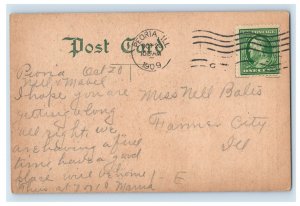 Post Card
PEORIA, ILL.
1909
Peoria Oct 20
I hope you are
getting along
all right, we
are having a fine
time have a good
place will be home
Thurs at 7
Miss Nell Balis
Farmer City
Ill